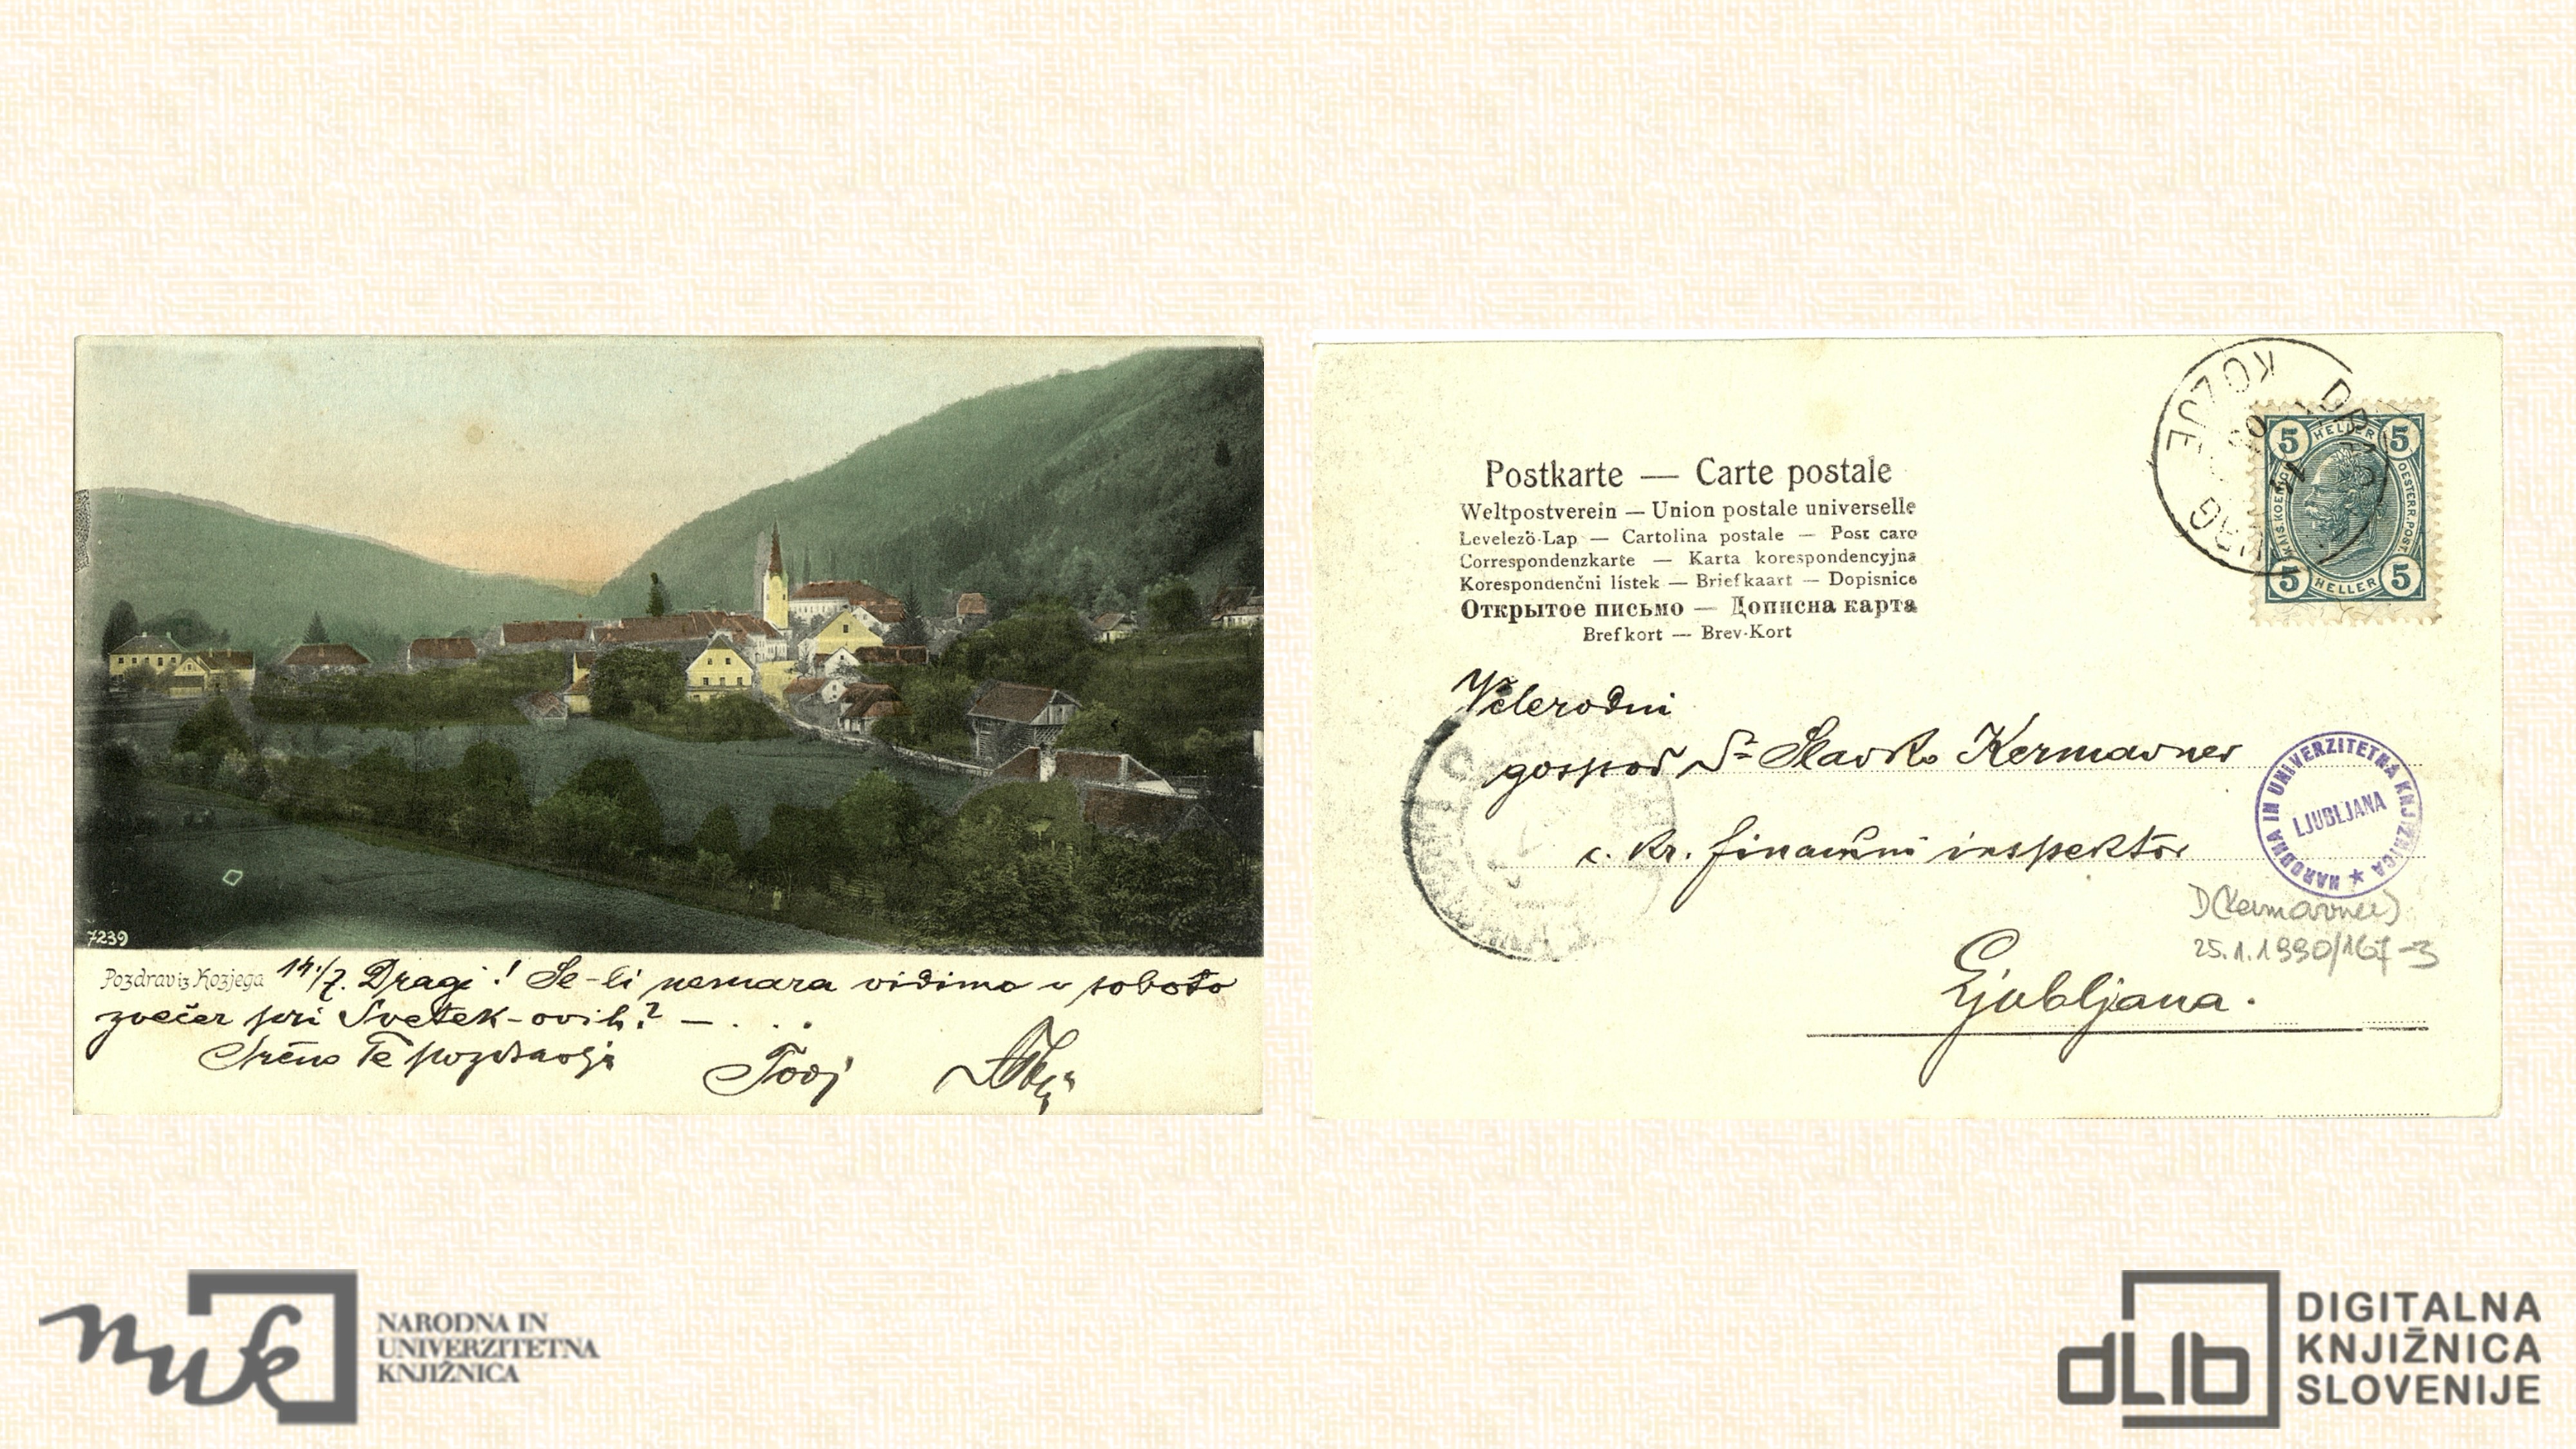 7239
Pozdrav iz Kozjega 14./7. Dragi! Se-li nemara vidimo v soboto
zvečer pri Svetek-ovih? — . . .
Srčno Te pozdravlja
Tvoj
KOZJE
Postkarte — Carte postale
Weltpostverein — Union postale universelle
Levelezö-Lap — Cartolina postale — Post caro
Correspondenzkarte — Karta korespondencyjna
Korespondenčni lístek — Briefkaart — Dopisnice
Открытое письмо — Дописна карта
Brefkort — Brev-Kort
5 HELLER 5
KAIS.KOENIGL. OESTERR.POST.
5 HELLER 5
Velerodni
gospod Slavko Kermavner
c. kr. finančni inspektor
NARODNA IN UNIVERZITETNA KNJIŽNICA ★
LJUBLJANA
D(Kermavner)
25.1.1990/167-3
Ljubljana.
nuk
NARODNA IN
UNIVERZITETNA
KNJIŽNICA
dLib
DIGITALNA
KNJIŽNICA
SLOVENIJE